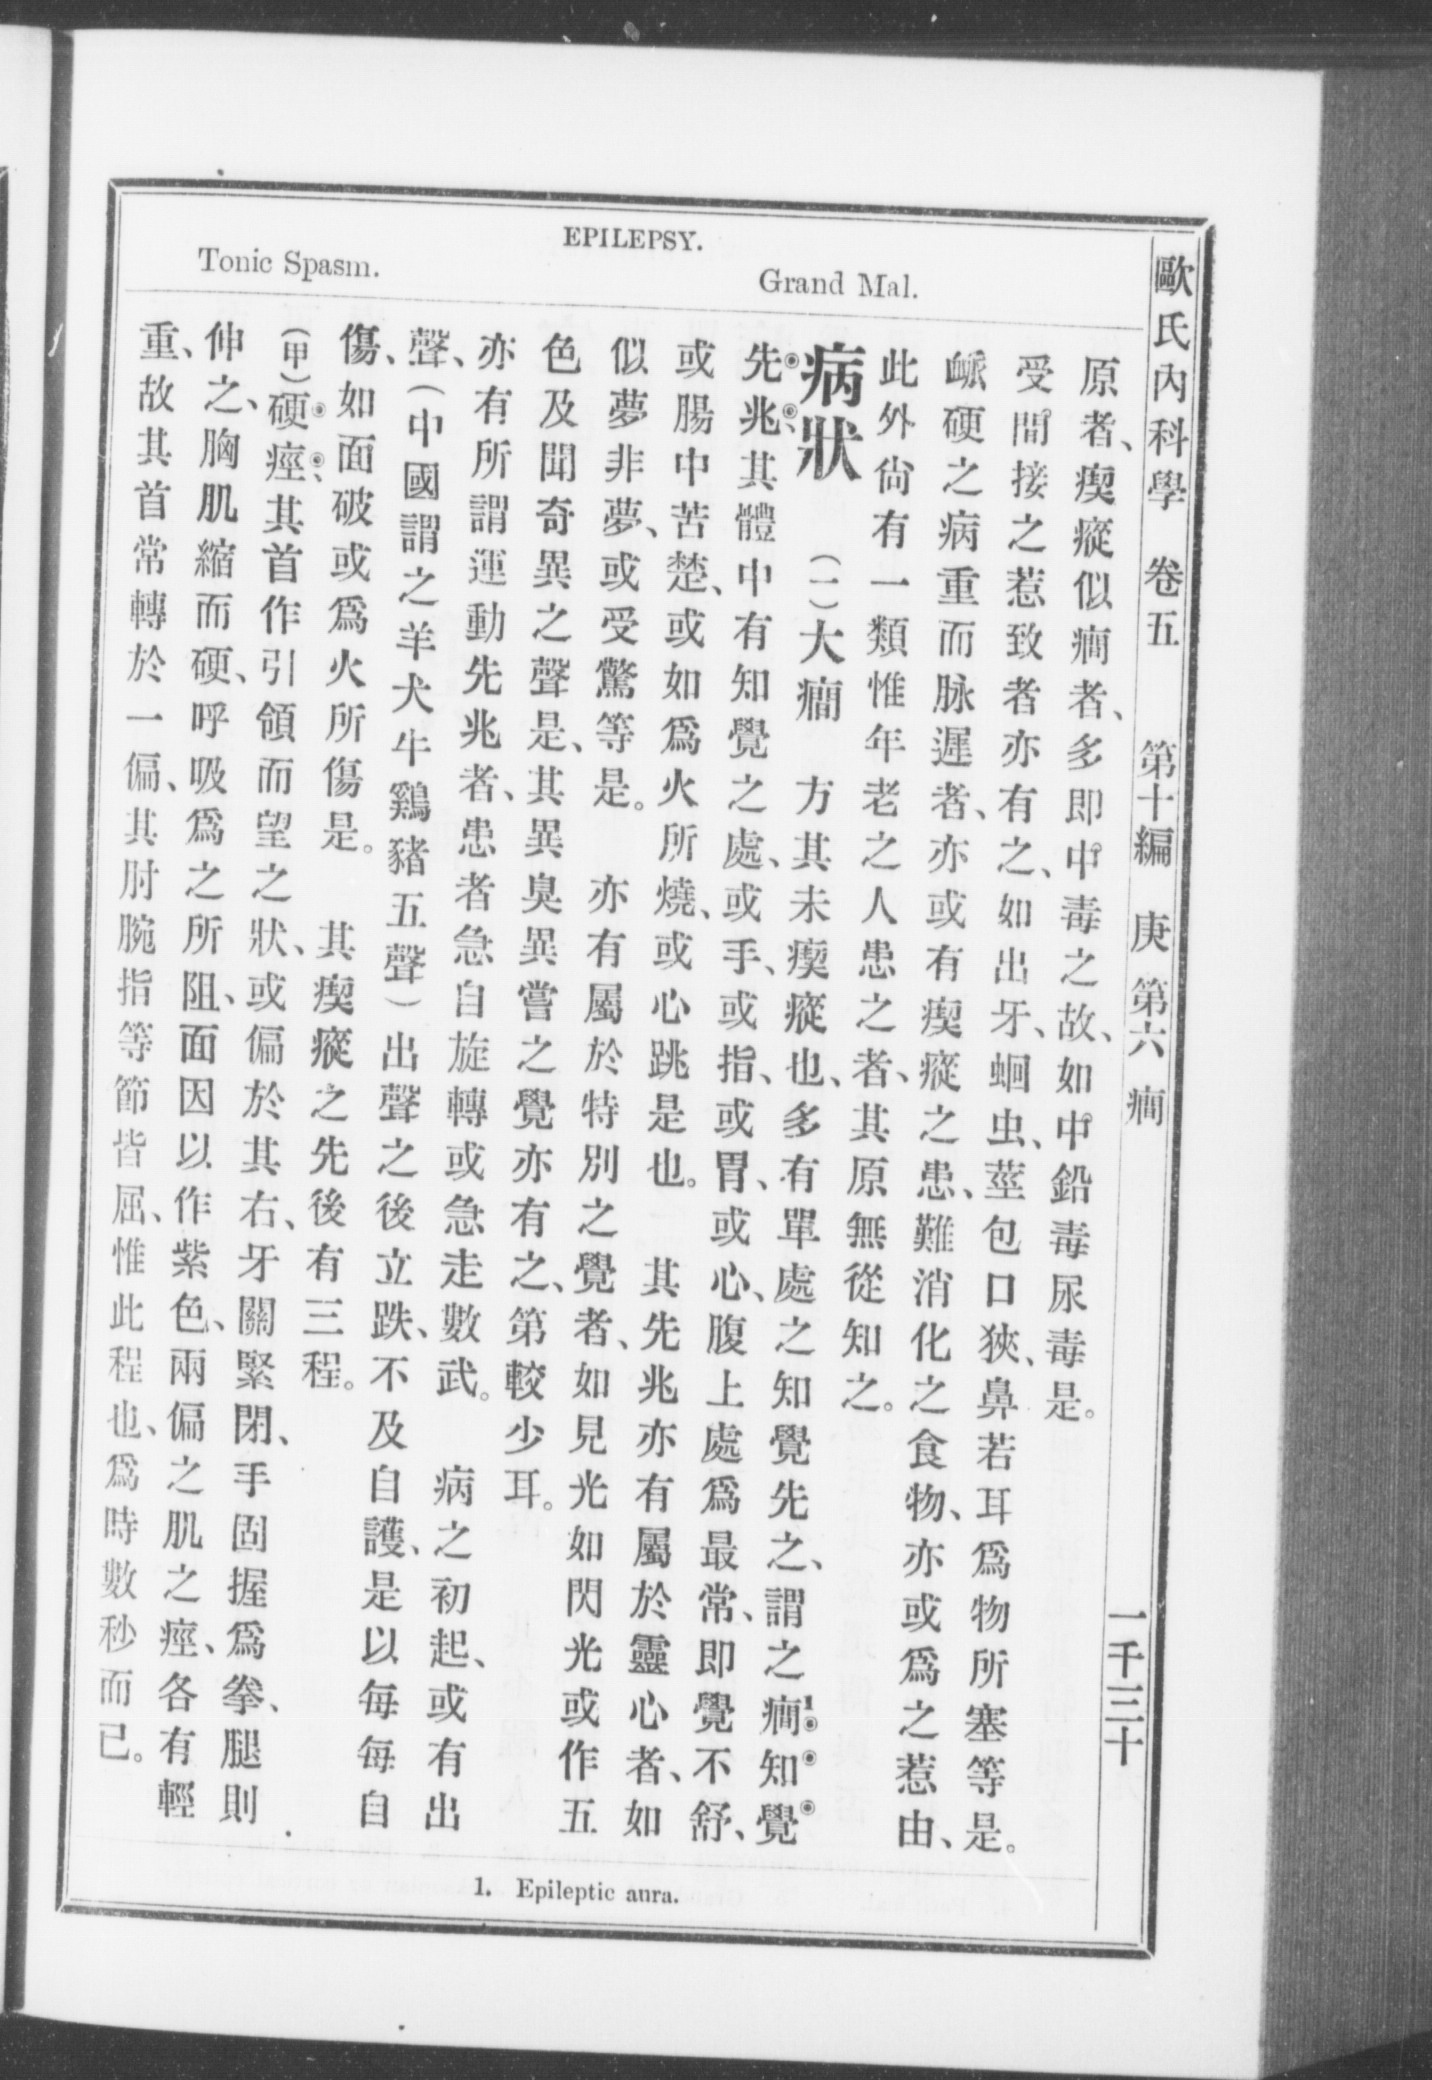 EPILEPSY.
Tonic Spasm.
Grand Mal.
歐氏內科學 卷五 第十編 庚 第六 癎 一千三十
原者、瘈瘲似癎者、多即中毒之故、如中鉛毒尿毒是。
受間接之惹致者亦有之、如出牙、蛔虫、莖包口狹、鼻若耳爲物所塞等是。
衇硬之病重而脉遲者、亦或有瘈瘲之患、難消化之食物、亦或爲之惹由、
此外尙有一類惟年老之人患之者、其原無從知之。
病狀 (一)大癎 方其未瘈瘲也、多有單處之知覺先之、謂之癎1知覺
先兆、其體中有知覺之處、或手、或指、或胃、或心、腹上處爲最常、即覺不舒、
或腸中苦楚、或如爲火所燒、或心跳是也。 其先兆亦有屬於靈心者、如
似夢非夢、或受驚等是。 亦有屬於特別之覺者、如見光如閃光或作五
色及聞奇異之聲是、其異臭異嘗之覺亦有之、第較少耳。
亦有所謂運動先兆者、患者急自旋轉或急走數武。 病之初起、或有出
聲、(中國謂之羊犬牛鷄豬五聲)出聲之後立跌、不及自護、是以每每自
傷、如面破或爲火所傷是。 其瘈瘲之先後有三程。
(甲)硬痙、其首作引領而望之狀、或偏於其右、牙關緊閉、手固握爲拳、腿則
伸之、胸肌縮而硬、呼吸爲之所阻、面因以作紫色、兩偏之肌之痙、各有輕
重、故其首常轉於一偏、其肘腕指等節皆屈、惟此程也、爲時數秒而已。
1. Epileptic aura.